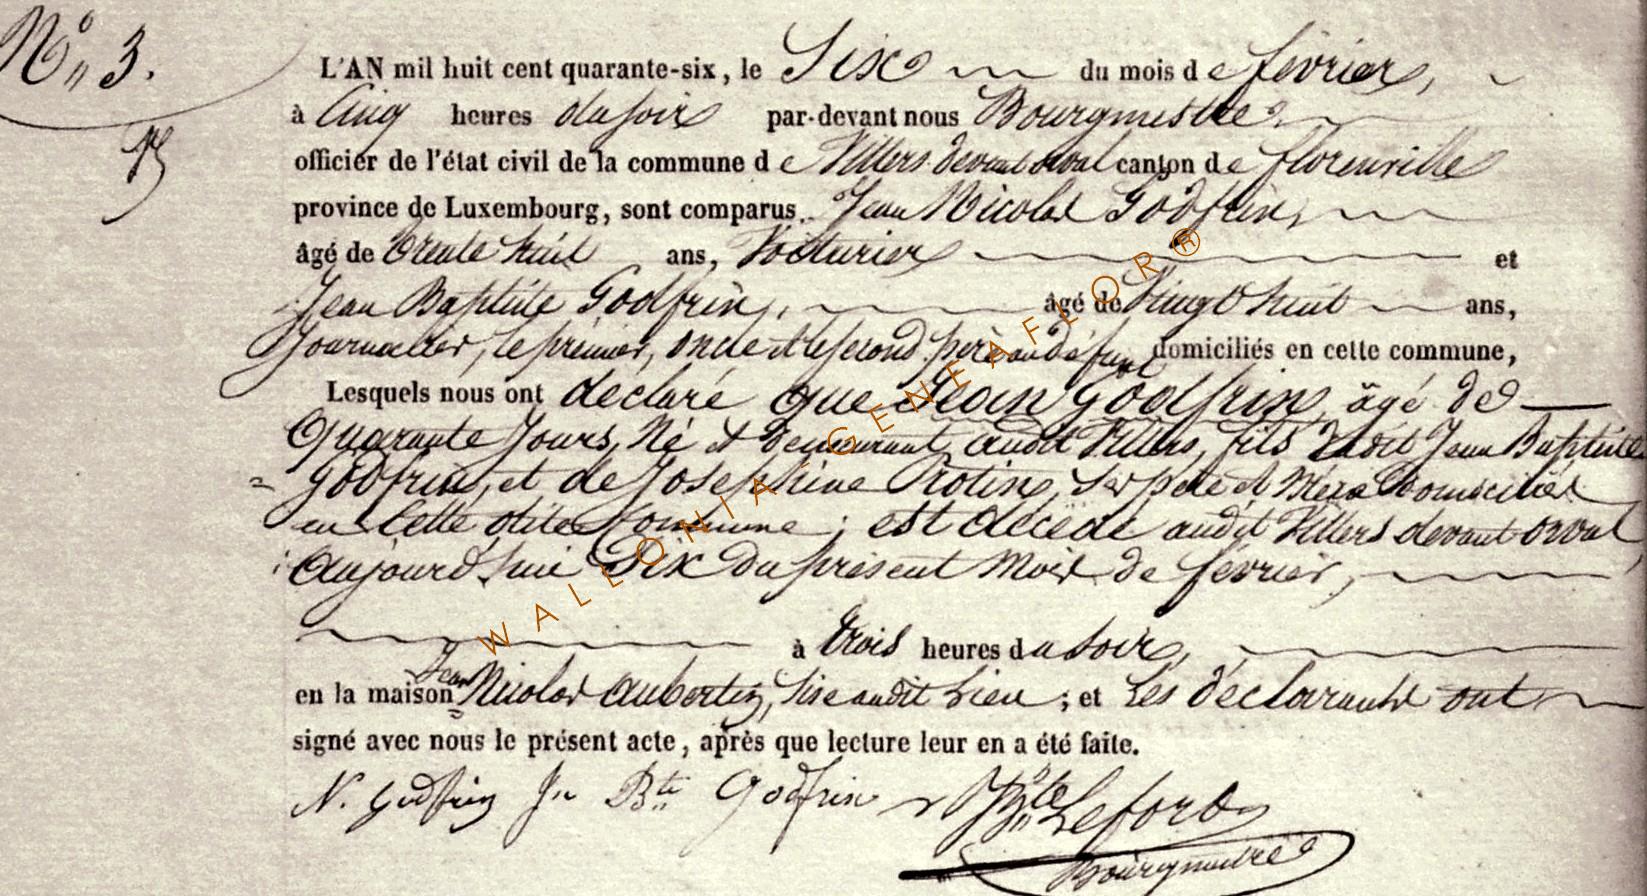 N° 3.
L'AN mil huit cent quarante-six, le Six du mois de février,
à Cinq heures du soir par-devant nous Bourgmestre
officier de l'état civil de la commune de Villers devant orval canton de florenville
province de Luxembourg, sont comparus Jean Nicolas Godfrin,
âgé de trente huit ans, Voiturier et
Jean Baptiste Godfrin, âgé de Vingt huit ans,
Journalier, le premier, oncle et le second père au défunt domiciliés en cette commune,
Lesquels nous ont déclaré que Jean Godfrin, âgé de
Quarante Jours, Né et demeurant audit Villers, fils dudit Jean Baptiste
Godfrin, et de Josephine Rotin, Ses père et Mère Domiciliés
en Cette dite Commune ; est décédé audit Villers devant orval,
Aujourd'hui Six du présent Mois de février,
à trois heures du soir,
en la maison Jean Nicolas Aubertin, Sise audit Lieu ; et Les déclarants ont
signé avec nous le présent acte, après que lecture leur en a été faite.
N. Godfrin Jn Bte Godfrin Bte Lefort
Bourgmestre
WALLONIA-GENEAFLOR®